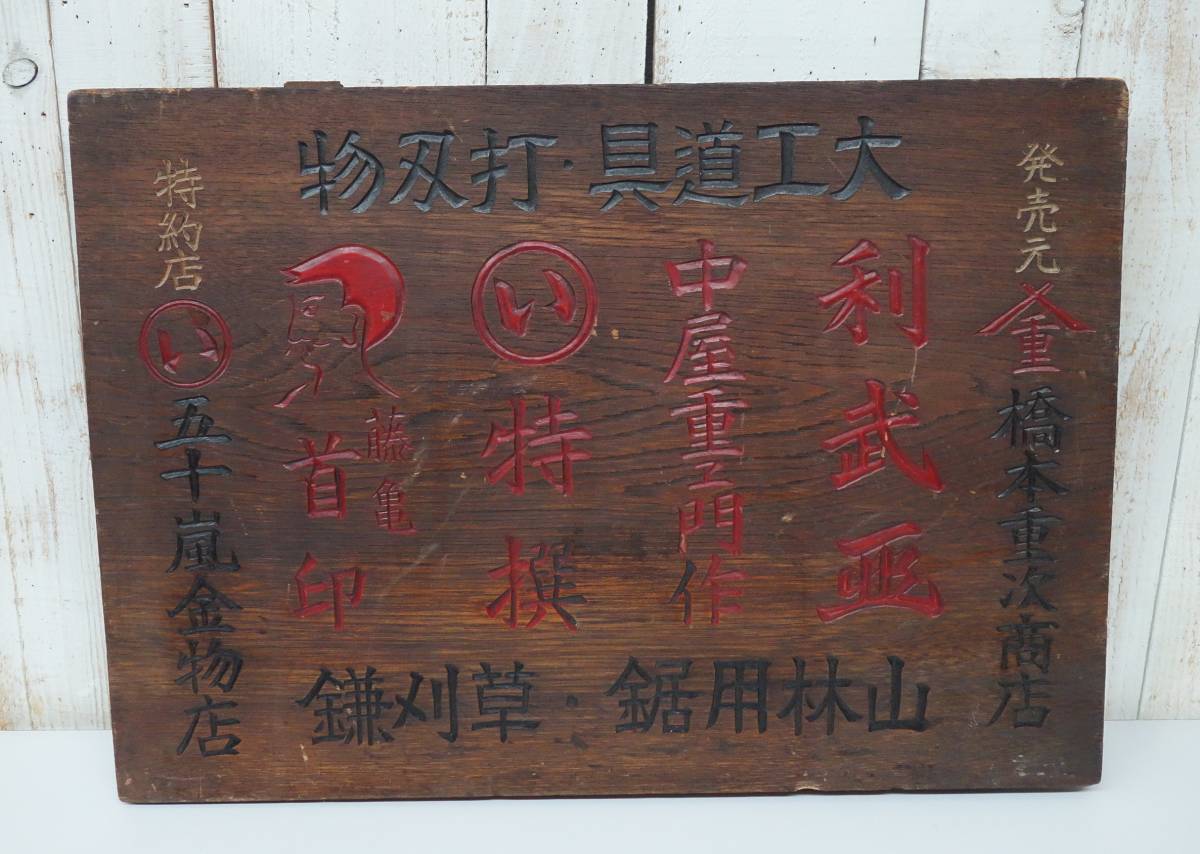 大工道具・打刄物
発売元
重
橋本重次商店
利武
中屋重エ門作
い特撰
藤亀
首印
山林用鋸・草刈鎌
特約店
い
五十嵐金物店